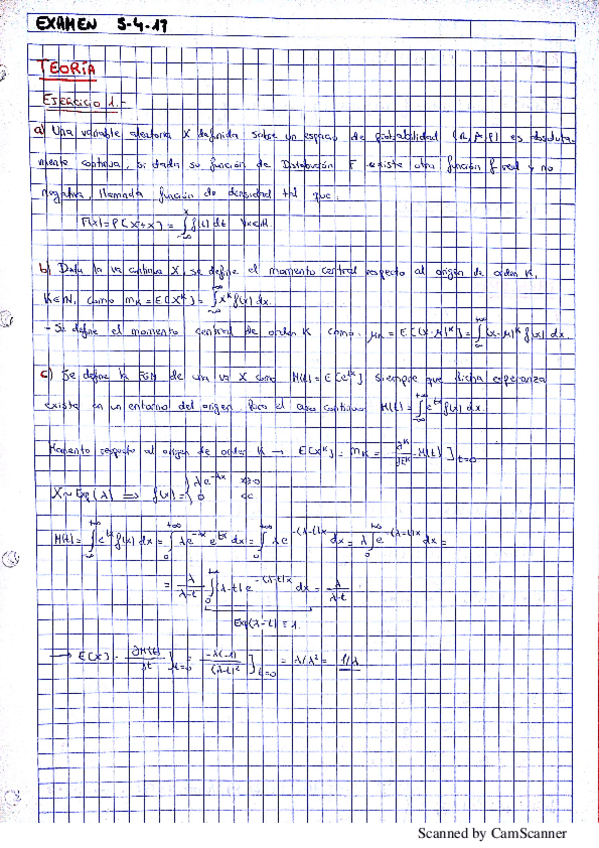 EXAMEN 5-4-17
TEORÍA
EJERCICIO 1.-
a) Una variable aleatoria X definida sobre un espacio de probabilidad (Ω, A, P) es absoluta-
mente continua, si dada su función de Distribución F existe otra función f real y no
negativa, llamada función de densidad tal que:
F(x) = P(X≤x) = ∫_{-∞}^{x} f(t) dt ∀x∈ℝ.
b) Dada la va continua X, se define el momento central respecto al origen de orden K,
K∈ℕ, como m_K = E[X^K] = ∫_{-∞}^{+∞} x^K f(x) dx.
- Se define el momento central de orden K como μ_K = E[(X-μ)^K] = ∫_{-∞}^{+∞} (x-μ)^K f(x) dx.
c) Se define la FGM de una va X como M(t) = E[e^{tx}] siempre que dicha esperanza
exista en un entorno del origen. Para el caso continuo M(t) = ∫_{-∞}^{+∞} e^{tx} f(x) dx.
Momento respecto al origen de orden K → E[X^K] = m_K = ∂^K/∂t^K M(t)]_{t=0}
X ~ Exp(λ) ⟹ f(x) = { λe^{-λx} x>0
0
M(t) = ∫_{-∞}^{+∞} e^{tx} f(x) dx = ∫_{0}^{+∞} λe^{-λx} e^{tx} dx = ∫_{0}^{+∞} λe^{-(λ-t)x} dx = λ ∫_{0}^{+∞} e^{-(λ-t)x} dx =
= λ/(λ-t) ∫_{0}^{+∞} (λ-t) e^{-(λ-t)x} dx = λ/(λ-t)
Exp(λ-t) = 1.
→ E[X] = ∂M(t)/∂t]_{t=0} = -λ(-1)/(λ-t)²]_{t=0} = λ/λ² = 1/λ
Scanned by CamScanner